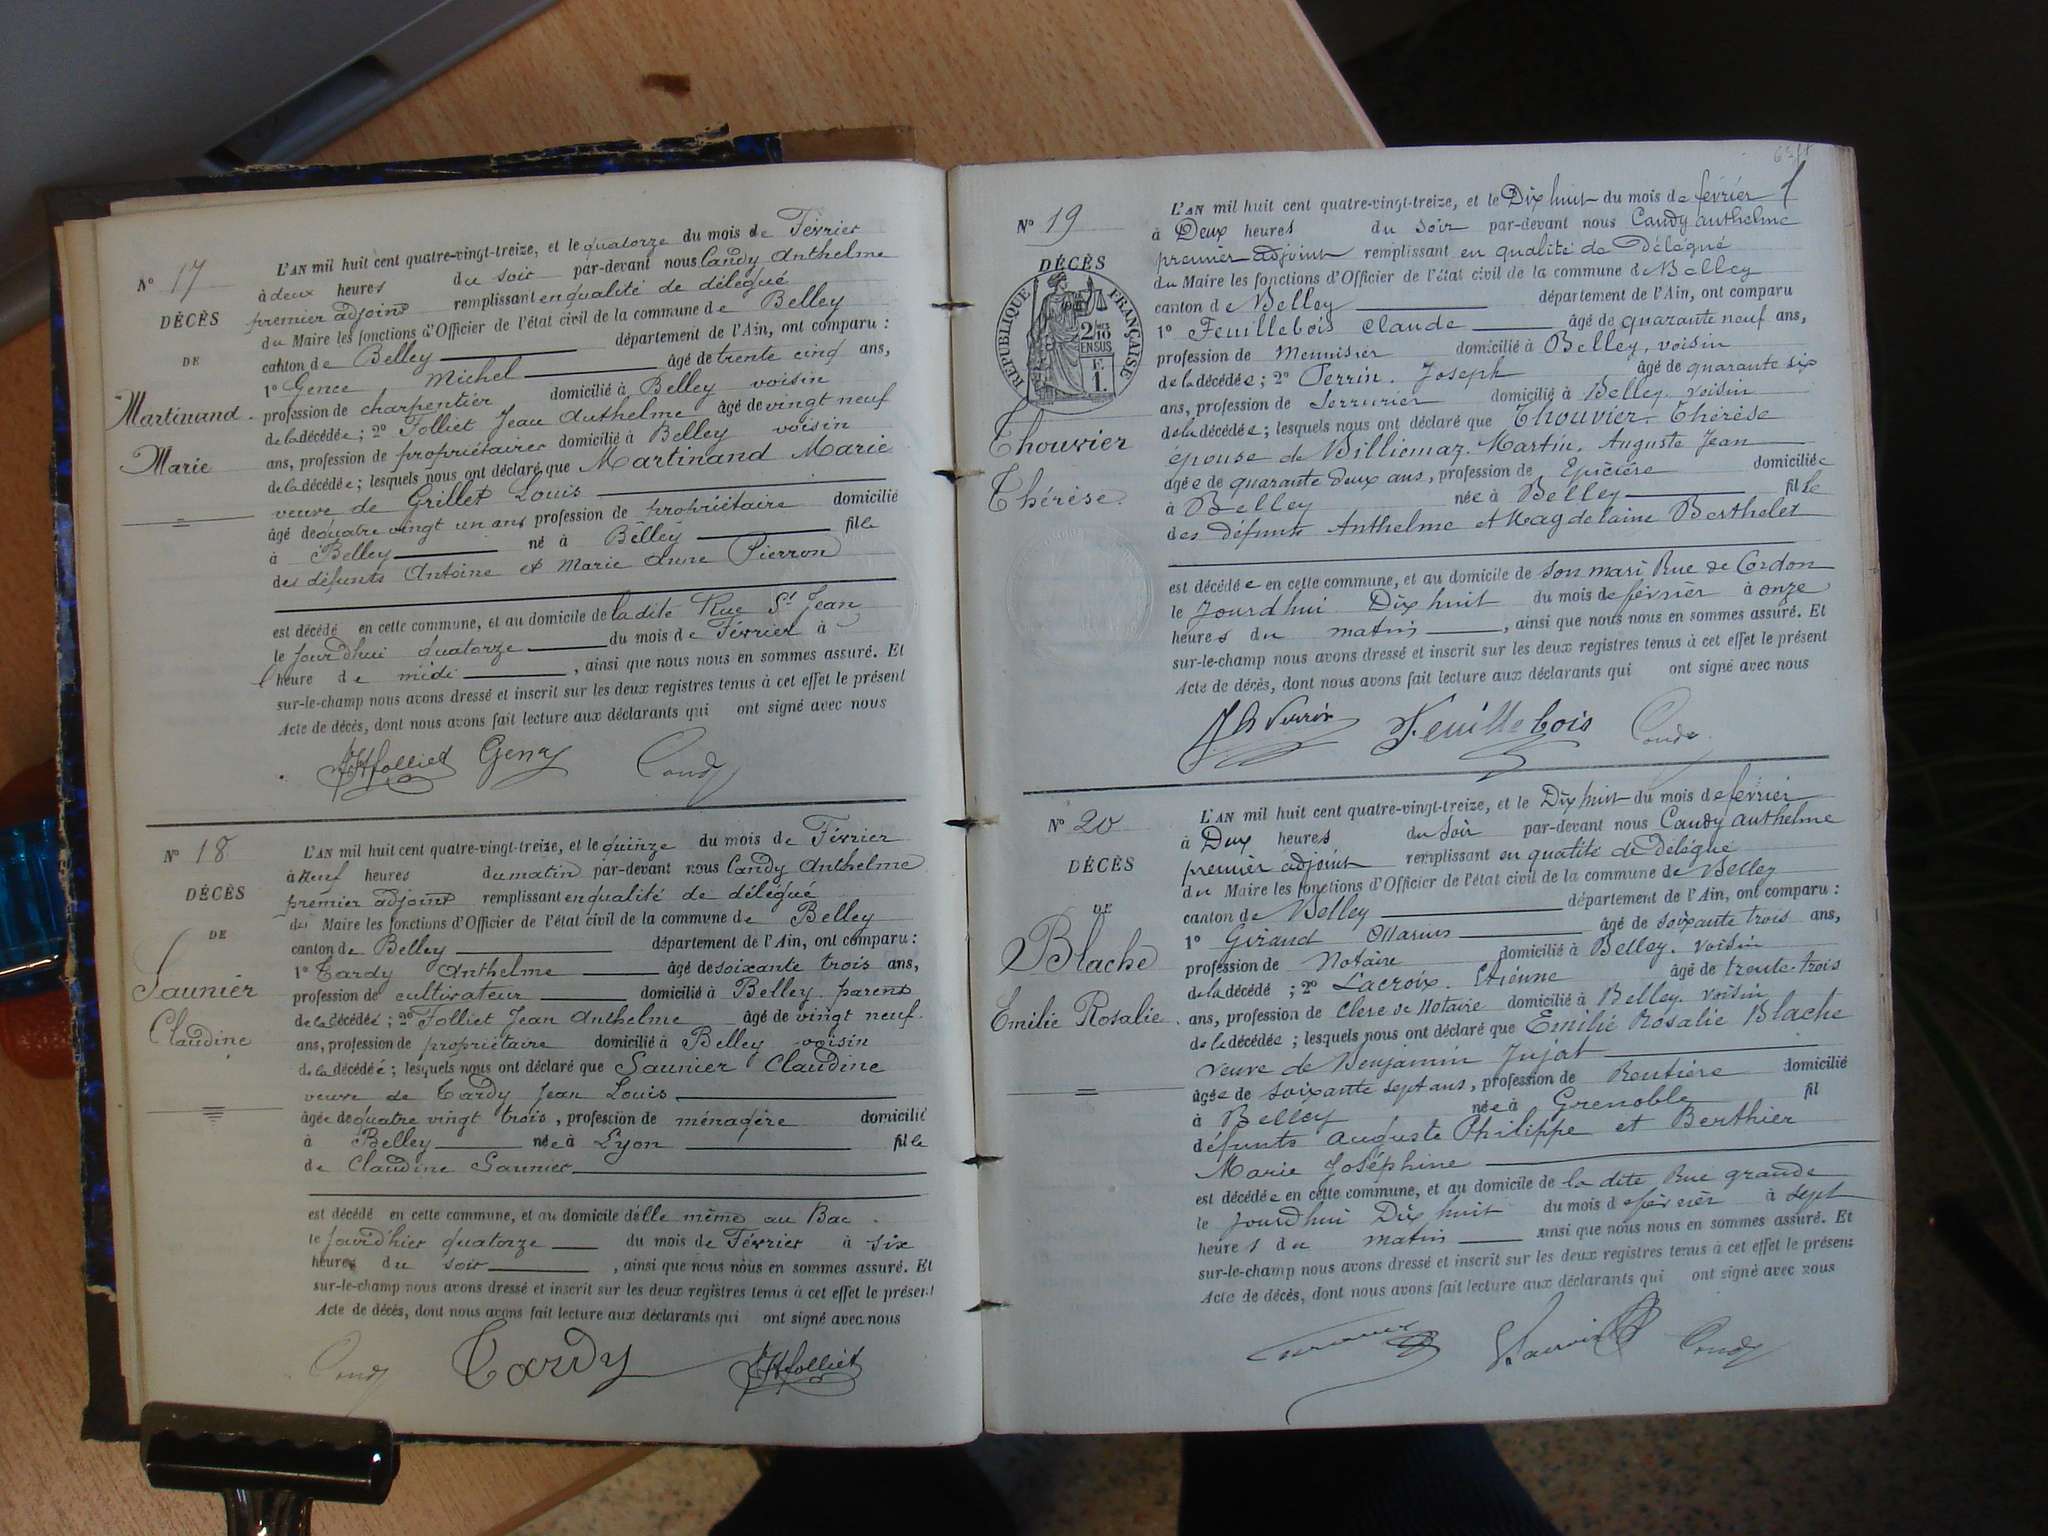 N° 17
DÉCÈS
DE
Martinand
Marie
L'AN mil huit cent quatre-vingt-treize, et le quatorze du mois de Février
à deux heures du soir par-devant nous Candy Anthelme
premier adjoint remplissant en qualité de délégué
du Maire les fonctions d'Officier de l'état civil de la commune de Belley
canton de Belley département de l'Ain, ont comparu :
1° Gence Michel âgé de trente cinq ans,
profession de charpentier domicilié à Belley voisin
de la décédée ; 2° Folliet Jean Anthelme âgé de vingt neuf
ans, profession de propriétaires domicilié à Belley voisin
de la décédée ; lesquels nous ont déclaré que Martinand Marie
veuve de Grillet Louis
âgé de quatre vingt un ans profession de propriétaire domicilié
à Belley né à Belley fille
des défunts Antoine et Marie Anne Pierron
est décédé en cette commune, et au domicile de la dite Rue St Jean
le jourd'hui quatorze du mois de Février à
l'heure de midi , ainsi que nous nous en sommes assuré. Et
sur-le-champ nous avons dressé et inscrit sur les deux registres tenus à cet effet le présent
Acte de décès, dont nous avons fait lecture aux déclarants qui ont signé avec nous
JHfolliet Candy
N° 18
DÉCÈS
DE
Saunier
Claudine
L'AN mil huit cent quatre-vingt-treize, et le quinze du mois de Février
à neuf heures du matin par-devant nous Candy Anthelme
premier adjoint remplissant en qualité de délégué
du Maire les fonctions d'Officier de l'état civil de la commune de Belley
canton de Belley département de l'Ain, ont comparu :
1° Tardy Anthelme âgé de soixante trois ans,
profession de cultivateur domicilié à Belley parent
de la décédée ; 2° Folliet Jean Anthelme âgé de vingt neuf
ans, profession de propriétaire domicilié à Belley voisin
de la décédée ; lesquels nous ont déclaré que Saunier Claudine
veuve de Tardy Jean Louis
âgée de quatre vingt trois, profession de ménagère domicilié
à Belley née à Lyon fille
de Claudine Saunier
est décédé en cette commune, et au domicile d'elle même au Bac
le jour d'hier quatorze du mois de Février à six
heures du soir , ainsi que nous nous en sommes assuré. Et
sur-le-champ nous avons dressé et inscrit sur les deux registres tenus à cet effet le présent
Acte de décès, dont nous avons fait lecture aux déclarants qui ont signé avec nous
Candy Tardy JHfolliet
N° 19
DÉCÈS
RÉPUBLIQUE FRANÇAISE
2/10
EN SUS
F
1.
Thouvier
Thérèse
L'AN mil huit cent quatre-vingt-treize, et le Dix huit du mois de février
à Deux heures du soir par-devant nous Candy anthelme
premier adjoint remplissant en qualité de Délégué
du Maire les fonctions d'Officier de l'état civil de la commune de Belley
canton de Belley département de l'Ain, ont comparu
1° Feuillebois Claude âgé de quarante neuf ans,
profession de Menuisier domicilié à Belley, voisin
de la décédée ; 2° Perrin. Joseph âgé de quarante six
ans, profession de Serrurier domicilié à Belley. voisin
de la décédée ; lesquels nous ont déclaré que Thouvier. Thérèse
épouse de Billiemaz. Martin. Auguste Jean
agée de quarante deux ans, profession de Epicière domiciliée
à Belley née à Belley fille
des défunts Anthelme et Magdelaine Berthelet
est décédée en cette commune, et au domicile de son mari Rue de Cordon
le Jourdhui Dix huit du mois de février à onze
heures du matin , ainsi que nous nous en sommes assuré. Et
sur-le-champ nous avons dressé et inscrit sur les deux registres tenus à cet effet le présent
Acte de décès, dont nous avons fait lecture aux déclarants qui ont signé avec nous
Perrin Feuillebois Candy
N° 20
DÉCÈS
DE
Blache
Emilie Rosalie
L'AN mil huit cent quatre-vingt-treize, et le Dix huit du mois de février
à Deux heures du soir par-devant nous Candy anthelme
premier adjoint remplissant en qualité de Délégué
du Maire les fonctions d'Officier de l'état civil de la commune de Belley
canton de Belley département de l'Ain, ont comparu :
1° Girand Marius âgé de soixante trois ans,
profession de Notaire domicilié à Belley. voisin
de la décédé ; 2° Lacroix. Etiénne âgé de trente. trois
ans, profession de Clerc de Notaire domicilié à Belley. voisin
de la décédée ; lesquels nous ont déclaré que Emilie Rosalie Blache
veuve de Benjamin Jujat
âgée de soixante sept ans, profession de Rentière domicilié
à Belley née à Grenoble fil
défunts Auguste Philippe et Berthier
Marie Joséphine
est décédée en cette commune, et au domicile de la dite Rue grande
le Jourdhui Dix huit du mois de février à sept
heures du matin ainsi que nous nous en sommes assuré. Et
sur-le-champ nous avons dressé et inscrit sur les deux registres tenus à cet effet le présent
Acte de décès, dont nous avons fait lecture aux déclarants qui ont signé avec nous
Candy